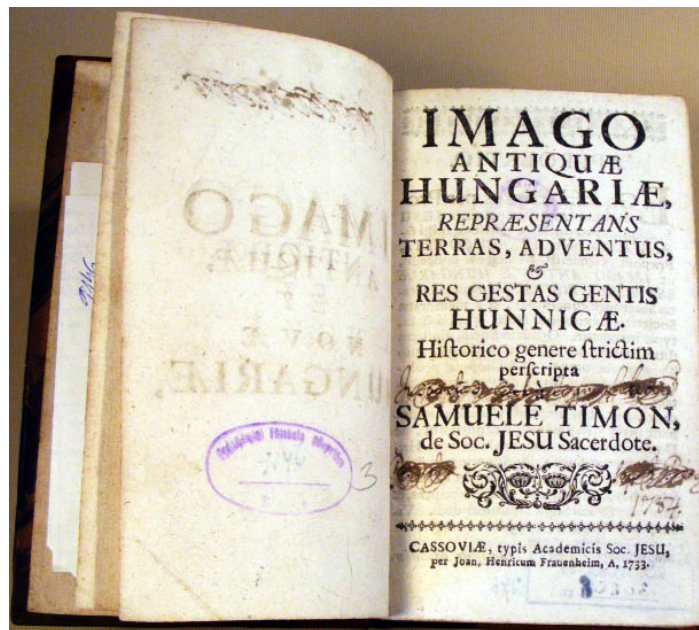 9146
9146
3
IMAGO
ANTIQUÆ
HUNGARIÆ,
REPRÆSENTANS
TERRAS, ADVENTUS,
&
RES GESTAS GENTIS
HUNNICÆ.
Hiſtorico genere ſtrictim
perſcripta
à
SAMUELE TIMON,
de Soc. JESU Sacerdote.
1734.
CASSOVIÆ, typis Academicis Soc. JESU,
per Joan. Henricum Frauenheim, A, 1733.